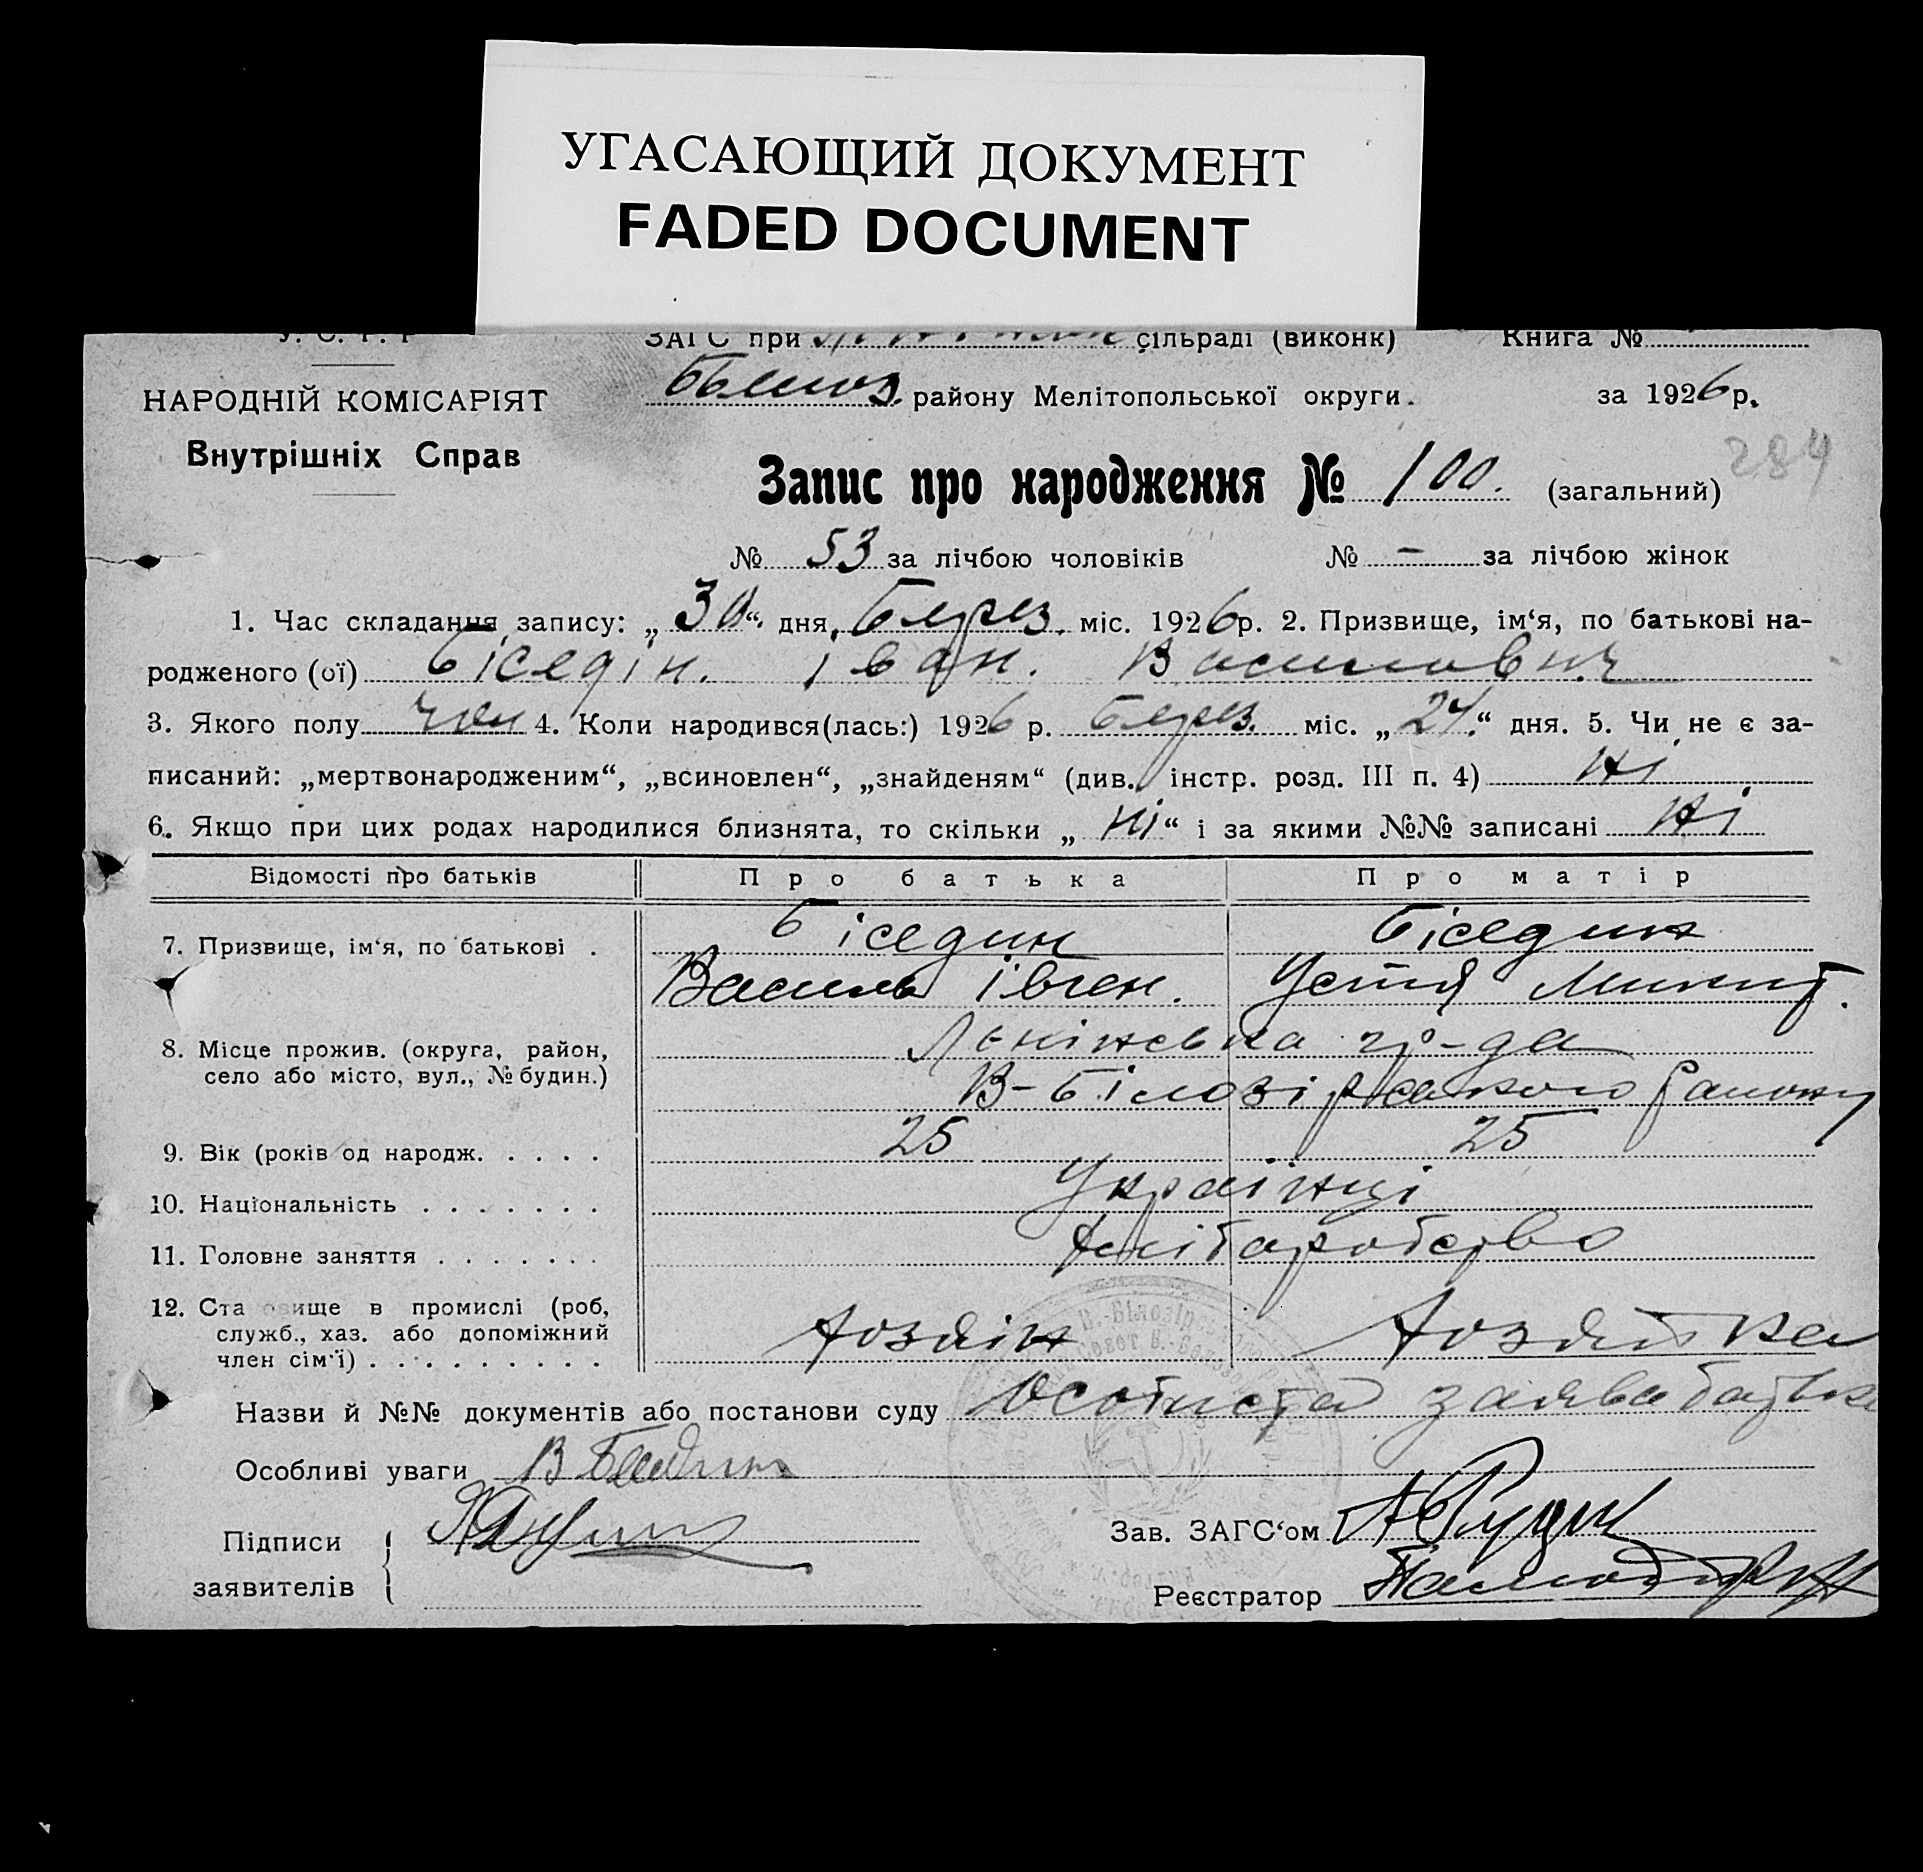 УГАСАЮЩИЙ ДОКУМЕНТ
FADED DOCUMENT
У. С. Р. Р
ЗАГС при сільраді (виконк) Книга №
НАРОДНІЙ КОМІСАРІЯТ
району Мелітопольської округи. за 1926 р.
Внутрішніх Справ
284
Запис про народження № 100. (загальний)
№ 53 за лічбою чоловіків № – за лічбою жінок
1. Час складання запису: „30“ дня, Берез. міс. 1926 р. 2. Призвище, ім‘я, по батькові на-
родженого (ої) Бісєдін. Іван. Василович
3. Якого полу чол 4. Коли народився(лась:) 1926 р. Берез. міс. „24.“ дня. 5. Чи не є за-
писаний: „мертвонародженим“, „всиновлен“, „знайденям“ (див. інстр. розд. III п. 4) Ні
6. Якщо при цих родах народилися близнята, то скільки „Ні“ і за якими №№ записані Ні
Відомості про батьків Про батька Про матір
7. Призвище, ім‘я, по батькові . Бісєдин Бісєдин
Василь Івген. Устя Микит.
8. Місце прожив. (округа, район, гр-да
село або місто, вул., № будин.) В-Білозірського району
9. Вік (років од народж. . . . . 25 25
10. Національність . . . . . . . Українці
11. Головне заняття . . . . . . . Хліборобство
12. Становище в промислі (роб, Хозяїн Хозяйка
служб., хаз. або допоміжний
член сім‘ї) . . . . . . . . . .
Назви й №№ документів або постанови суду Особиста заява батька
Особливі уваги
Підписи
заявителів
Зав. ЗАГС‘ом
Реєстратор